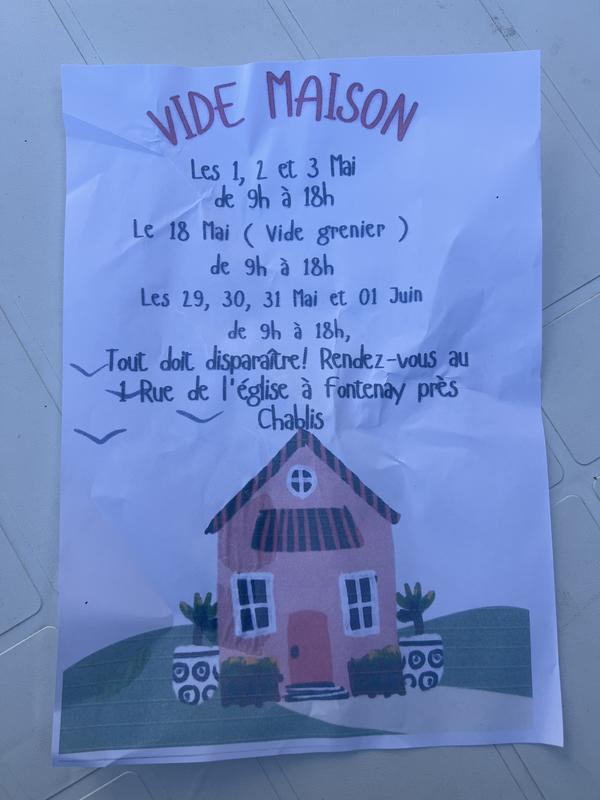 VIDE MAISON
Les 1, 2 et 3 Mai
de 9h à 18h
Le 18 Mai ( Vide grenier )
de 9h à 18h
Les 29, 30, 31 Mai et 01 Juin
de 9h à 18h,
Tout doit disparaître! Rendez-vous au
1 Rue de l'église à Fontenay près
Chablis